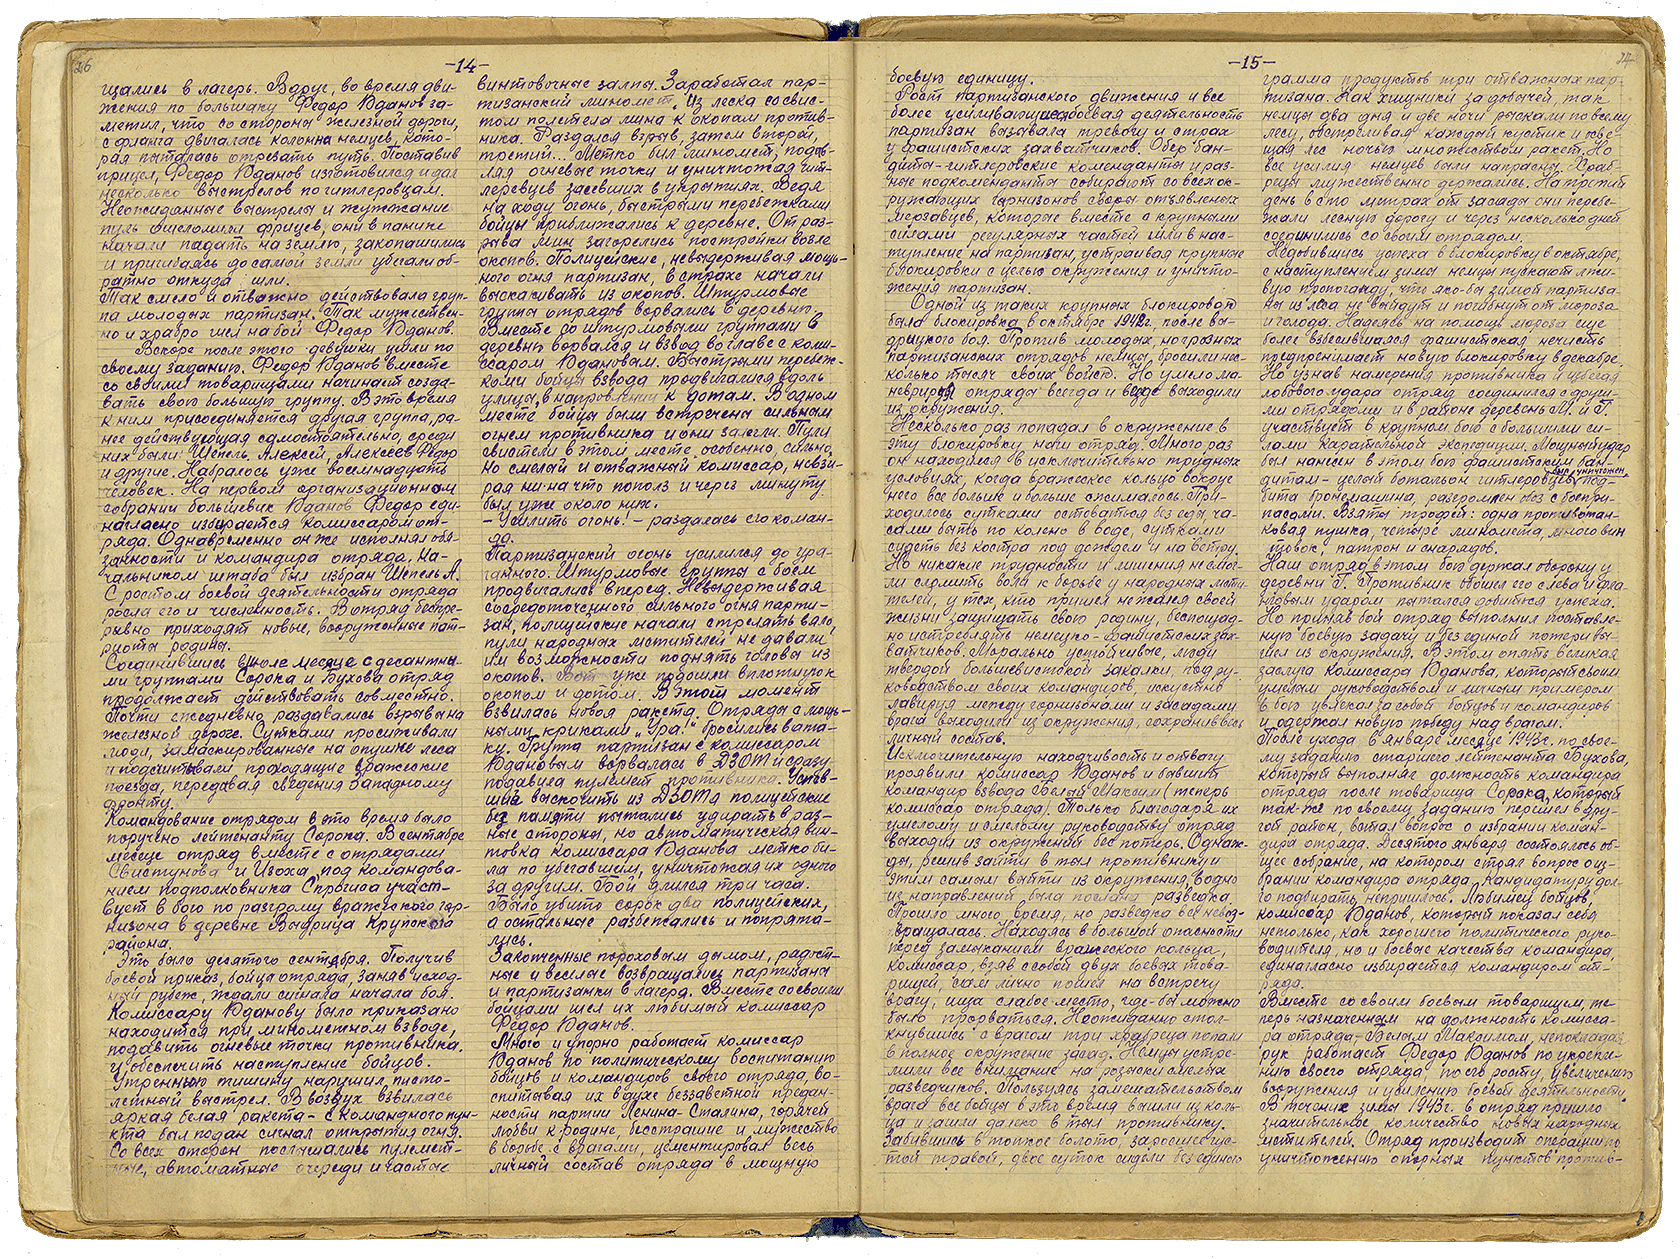 26
-14-
щались в лагерь. Вдруг, во время дви-
жения по большаку Федор Жданов за-
метил, что со стороны железной дороги,
с фланга двигалась колонна немцев, кото-
рая пыталась отрезать путь. Поставив
прицел, Федор Жданов изготовился и дал
несколько выстрелов по гитлеровцам.
Неожиданные выстрелы и жужжание
пуль ошеломили фрицев, они в панике
начали падать на землю, закопашились
и пригибаясь до самой земли убегали об-
ратно откуда шли.
Так смело и отважно действовала груп-
па молодых партизан. Так мужествен-
но и храбро шел на бой Федор Жданов.
Вскоре после этого девушки ушли по
своему заданию. Федор Жданов вместе
со своими товарищами начинает созда-
вать свою большую группу. В это время
к ним присоединяется другая группа, ра-
нее действующая самостоятельно, среди
них были Шепель Алексей, Алексеев Федор
и другие. Набралось уже восемнадцать
человек. На первом организационном
собрании большевик Жданов Федор еди-
нагласно избирается комиссаром от-
ряда. Одновременно он же исполнял обя-
занности и командира отряда. На-
чальником штаба был избран Шепель А.
С ростом боевой деятельности отряда
росла его и численность. В отряд беспре-
рывно приходят новые, вооруженные пат-
риоты родины.
Соединившись в июле месяце с десантны-
ми группами Сорока и Бухова отряд
продолжает действовать совместно.
Почти ежедневно раздавались взрывы на
железной дороге. Сутками просиживали
люди, замаскированные на опушке леса
и подсчитывали проходящие вражеские
поезда, передавая сведения Западному
фронту.
Командование отрядом в это время было
поручено лейтенанту Сорока. В сентябре
месяце отряд вместе с отрядами
Свистунова и Изоха, под командова-
нием подполковника Спрыгиса участ-
вует в бою по разгрому вражеского гар-
низона в деревне Выдрица Крупского
района.
Это было десятого сентября. Получив
боевой приказ, бойцы отряда, заняв исход-
ный рубеж, ждали сигнала начала боя.
Комиссару Жданову было приказано
находится при минометном взводе,
подавить огневые точки противника.
и обеспечить наступление бойцов.
Утреннюю тишину нарушил писто-
летный выстрел. В воздух взвилась
яркая белая ракета - с командного пун-
кта был подан сигнал открытия огня.
Со всех сторон послышались пулемет-
ные, автоматные очереди и частые
винтовочные залпы. Заработал пар-
тизанский миномет. Из леска со свис-
том полетела мина к окопам против-
ника. Раздался взрыв, затем второй,
третий... Метко бил миномет, подав-
ляя огневые точки и уничтожая гит-
леровцев засевших в укрытиях. Ведя
на ходу огонь, быстрыми перебежками
бойцы приближались к деревне. От раз-
рыва мин загорелись постройки возле
окопов. Полицейские, невыдерживая мощ-
ного огня партизан, в страхе начали
выскакивать из окопов. Штурмовые
группы отрядов ворвались в деревню.
Вместе со штурмовыми группами в
деревню ворвался и взвод во главе с коми-
ссаром Ждановым. Быстрыми перебеж-
ками бойцы взвода продвигались вдоль
улицы, в направлении к дотам. В одном
месте бойцы были встречены сильным
огнем противника и они залегли. Пули
свистели в этом месте особенно, сильно,
но смелый и отважный комиссар, невзи-
рая ни на что пополз и через минуту
был уже около них.
- Усилить огонь! - раздалась его коман-
да.
Партизанский огонь усилился до ура-
ганного. Штурмовые группы с боем
продвигались вперед. Невыдерживая
сосредоточенного сильного огня парти-
зан, полицейские начали стрелять вяло,
пули народных мстителей не давали
им возможности поднять головы из
окопов. Вот уже подошли вплотную к
окопам и дотам. В этот момент
взвилась новая ракета. Отряды с мощ-
ными криками „Ура!" бросились в ата-
ку. Группа партизан с комиссаром
Ждановым ворвалась в ДЗОТ и сразу
подавила пулемет противника. Успев-
шие выскочить из ДЗОТа полицейские
без памяти пытались удирать в раз-
ные стороны, но автоматическая вин-
товка комиссара Жданова метко би-
ла по убегавшим, уничтожая их одного
за другим. Бой длился три часа.
Было убито сорок два полицейских,
а остальные разбежались и попрята-
лись.
Закопченные пороховым дымом, радост-
ные и веселые возвращались партизаны
и партизанки в лагерь. Вместе со своими
бойцами шел их любимый комиссар
Федор Жданов.
Много и упорно работает комиссар
Жданов по политическому воспитанию
бойцов и командиров своего отряда, во-
спитывая их в духе беззаветной предан-
ности партии Ленина-Сталина, горячей
любви к родине, бесстрашие и мужество
в борьбе с врагами, цементировал весь
личный состав отряда в мощную
-15-
боевую единицу.
Рост партизанского движения и все
более усиливающаяся боевая деятельность
партизан вызывала тревогу и страх
у фашистских захватчиков. Обер бан-
диты-гитлеровские коменданты и раз-
ные подкоменданты собирают со всех ок-
ружающих гарнизонов своры отъявленых
мерзавцев, которые вместе с крупными
силами регулярных частей шли в нас-
тупление на партизан, устраивая крупные
блокировки с целью окружения и уничто-
жения партизан.
Одной из таких крупных блокировок
была блокировка в октябре 1942г. после вы-
дрицкого боя. Против молодых но грозных
партизанских отрядов немцы, бросили нес-
колько тысяч своих войск. Но умело ма-
неврируя отряды всегда и везде выходили
из окружения.
Несколько раз попадал в окружение в
эту блокировку наш отряд. Много раз
он находился в исключительно трудных
условиях, когда вражеское кольцо вокруг
него все больше и больше сжималось. При-
ходилось сутками оставаться без еды ча-
сами быть по колено в воде, сутками
сидеть без костра под дождем и на ветру.
Но никакие трудности и лишения не смог-
ли сломить воли к борьбе у народных мсти-
телей, у тех, кто пришел не жалея своей
жизни защищать свою родину, беспощад-
но истреблять немецко-фашистских зах-
ватчиков. Морально устойчивые, люди
твердой большевистской закалки, под ру-
ководством своих командиров, искустно
лавируя между гарнизонами и засадами
врага выходили из окружения, сохранив весь
личный состав.
Исключительную находчивость и отвагу
проявили комиссар Жданов и бывший
командир взвода Белый Максим (теперь
комиссар отряда). Только благодаря их
умелому и смелому руководству отряд
выходил из окружений без потерь. Однаж-
ды, решив зайти в тыл противнику и
этим самым выйти из окружения, в одно
из направлений была послана разведка.
Прошло много время, но разведка все невоз-
вращалась. Находясь в большой опасности
перед замыканием вражеского кольца,
комиссар, взяв с собой двух боевых това-
рищей, сам лично пошел на встречу
врагу, ища слабое место, где-бы можно
было прорваться. Неожиданно стол-
кнувшись с врагом три храбреца попали
в полное окружение засад. Немцы устре-
мили все внимание на розыски смелых
разведчиков. Пользуясь замешательством
врага все бойцы в это время вышли из коль-
ца и зашли далеко в тыл противнику.
Забившись в топкое болото, заросшее гус-
той травой, двое суток сидели без единого
грамма продуктов три отважных пар-
тизана. Как хищники за добычей, так
немцы два дня и две ночи рыскали по всему
лесу, обстреливая каждый кустик и осве-
щая лес ночью множеством ракет. Но
все усилия немцев были напрасны. Храб-
рецы мужественно держались. На третий
день в сто метрах от засады они перебе-
жали лесную дорогу и через несколько дней
соединились со своим отрядом.
Недобившись успеха в блокировку в октябре,
с наступлением зимы немцы пускают лжи-
вую пропоганду, что яко-бы зимой партиза-
ны из леса не выйдут и погибнут от мороза
и голода. Надеясь на помощь мороза еще
более взбесившаяся фашистская нечисть
предпринимает новую блокировку в декабре.
Но узнав намерения противника и избегая
лобового удара отряд соединился с други-
ми отрядами и в районе деревень М. и Г.
участвует в крупном бою с большими си-
лами карательной экспедиции. Мощный удар
был нанесен в этом бою фашистским бан-
дитам - целый батальон гитлеровцев был уничтожен, под-
бита бронемашина, разгромлен обоз с боепри-
пасами. Взяты трофеи: одна противотан-
ковая пушка, четыре миномета, много вин
товок, патрон и снарядов.
Наш отряд в этом бою держал оборону у
деревни Г. Противник обошел его слева и фла-
нговым ударом пытался добиться успеха.
Но приняв бой отряд выполнил поставле-
ную боевую задачу и без единой потери вы-
шел из окружения. В этом опять великая
заслуга комиссара Жданова, который своим
умелым руководством и личным примером
в бою увлекал за собой бойцов и командиров
и одержал новую победу над врагом.
После ухода в январе месяце 1943г. по свое-
му заданию старшего лейтенанта Бухова,
который выполнял должность командира
отряда после товарища Сорока, который
так-же по своему заданию перешел в дру-
гой район, встал вопрос о избрании коман-
дира отряда. Десятого января состоялось об-
щее собрание, на котором стоял вопрос о из-
брании командира отряда. Кандидатуру дол-
го подбирать непришлось. Любимец бойцов,
комиссар Жданов, который показал себя
нетолько, как хорошего политического руко-
водителя, но и боевые качества командира,
единагласно избирается командиром от-
ряда.
Вместе со своим боевым товарищем, те-
перь назначенным на должность комисса-
ра отряда, Белым Максимом, непокладая
рук работает Федор Жданов по укрепле-
нию своего отряда, по его росту, увеличению
вооружения и усилению боевой деятельности.
В течение зимы 1943г. в отряд пришло
значительное количество новых народных
мстителей. Отряд производит операции по
уничтожению опорных пунктов против-